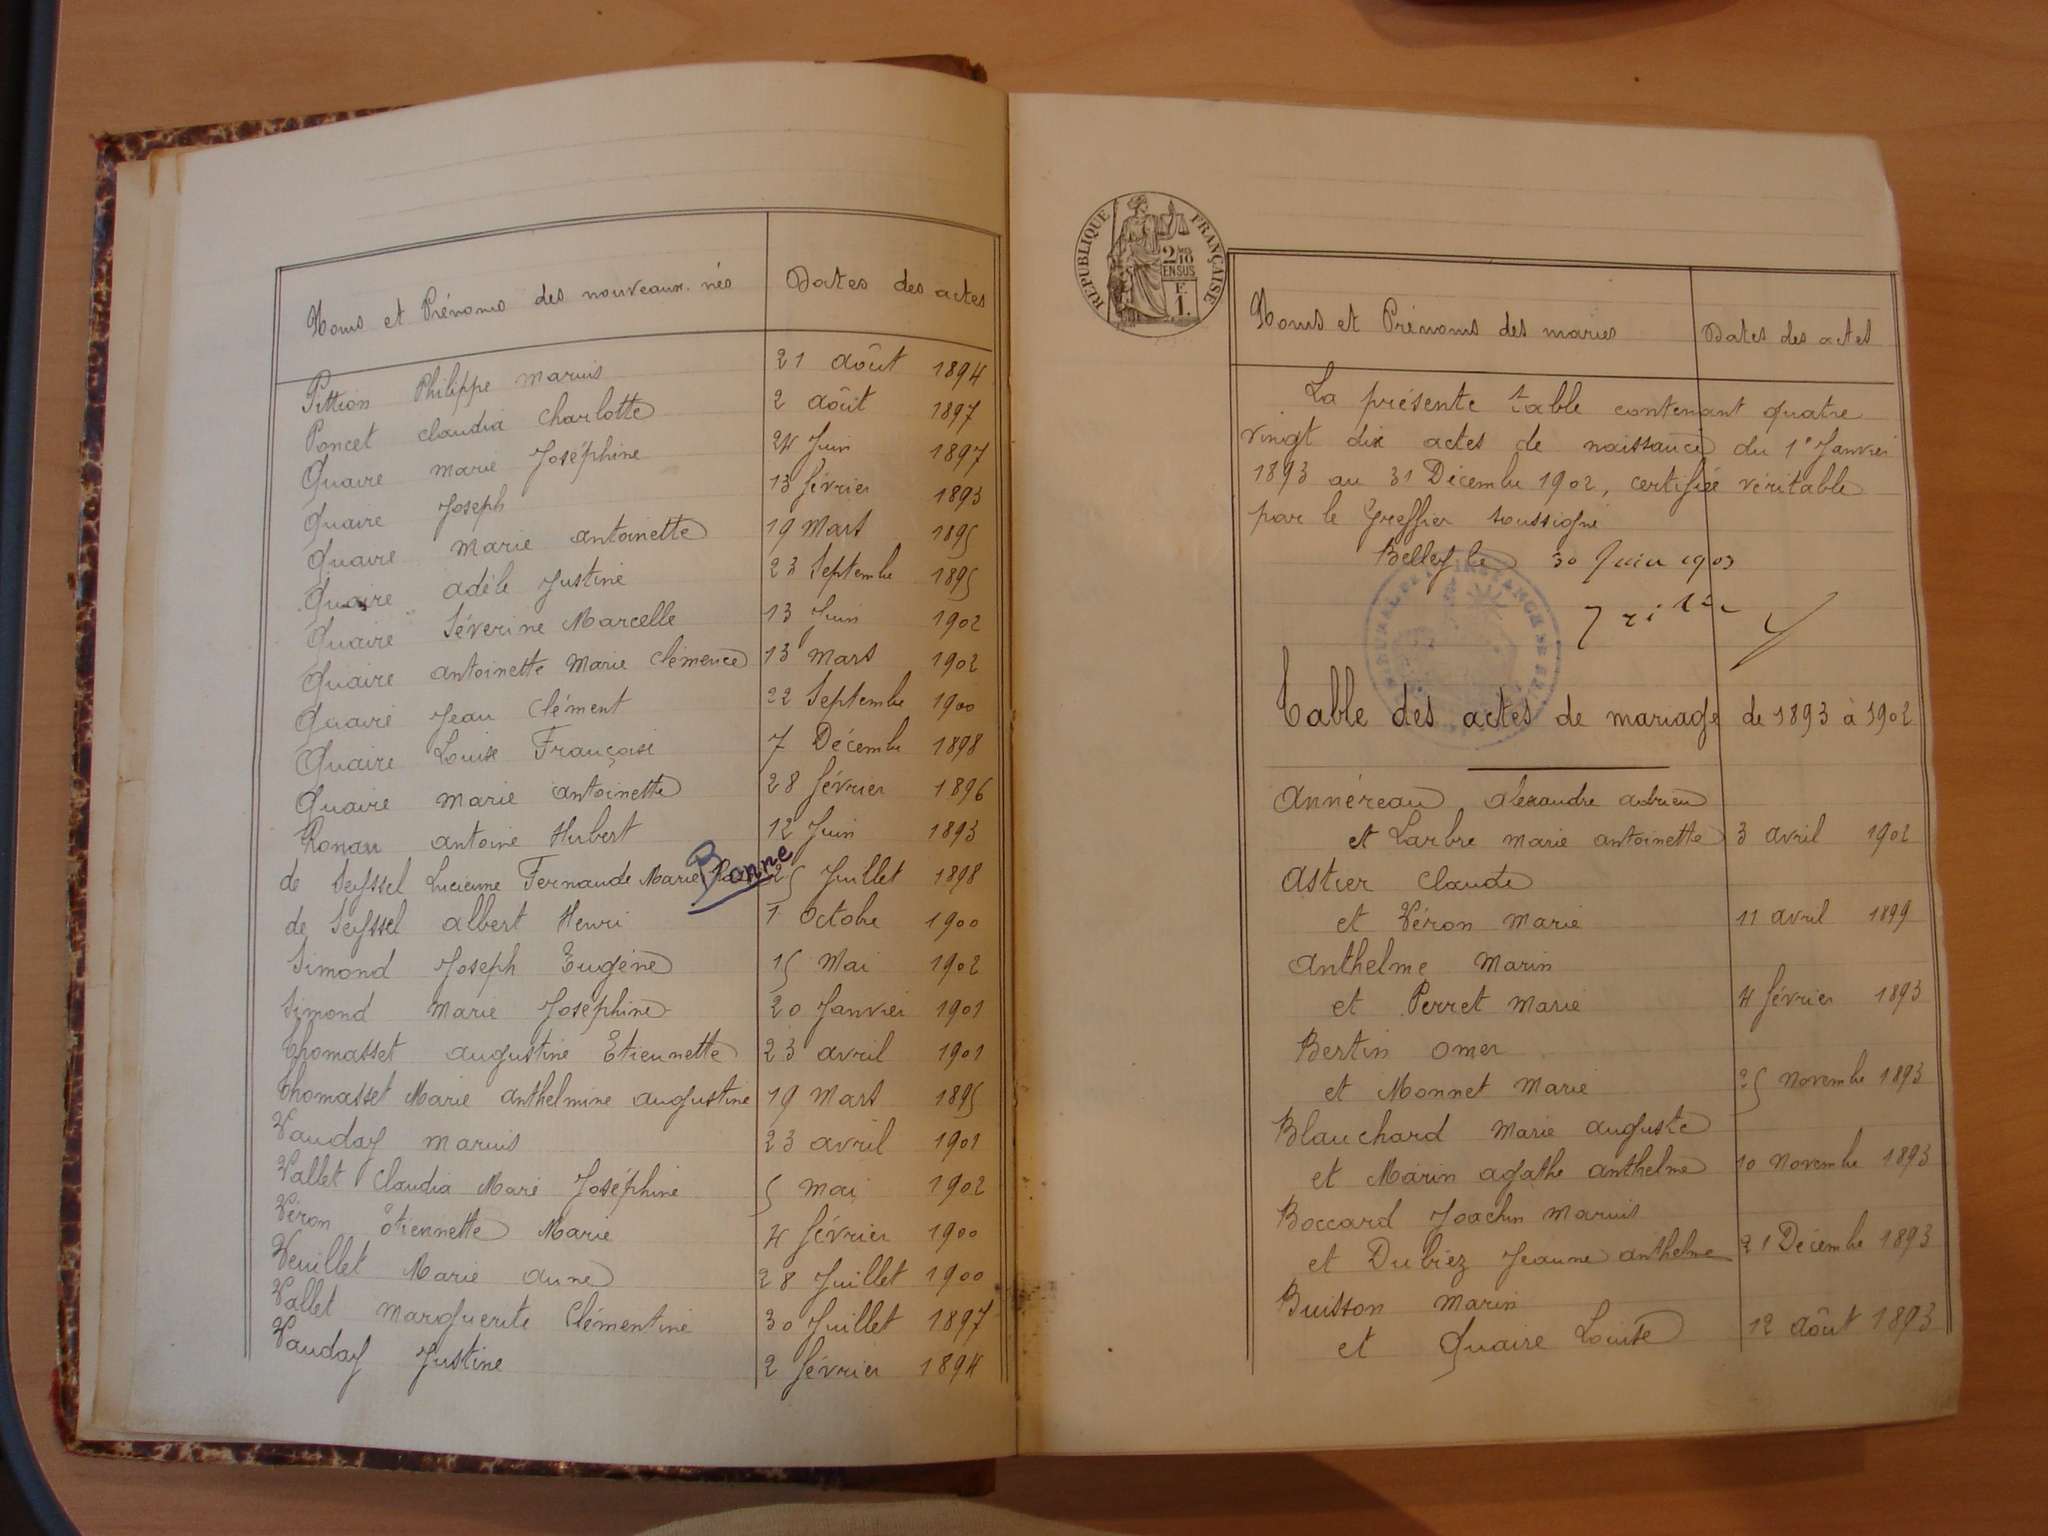 Noms et Prénoms des nouveaux-nés Dates des actes
Pittion Philippe Marius 21 août 1894
Poncet Claudia Charlotte 2 août 1897
Quaire Marie Joséphine 24 Juin 1897
Quaire Joseph 13 février 1893
Quaire Marie Antoinette 19 Mars 1895
Quaire Adèle Justine 23 Septembre 1895
Quaire Séverine Marcelle 13 Juin 1902
Quaire Antoinette Marie Clémence 13 Mars 1902
Quaire Jean Clément 22 Septembre 1900
Quaire Louise Françoise 7 Décembre 1898
Quaire Marie Antoinette 28 février 1896
Ronan Antoine Hubert 12 Juin 1893
de Seyssel Lucienne Fernande Marie Jeanne 25 Juillet 1898
de Seyssel Albert Henri 1 Octobre 1900
Simond Joseph Eugène 15 Mai 1902
Simond Marie Joséphine 20 Janvier 1901
Thomasset Augustine Etiennette 23 avril 1901
Thomasset Marie Anthelmine Augustine 19 Mars 1895
Vauday Marius 23 avril 1901
Vallet Claudia Marie Joséphine 5 Mai 1902
Véron Etiennette Marie 4 février 1900
Veuillet Marie Anne 28 Juillet 1900
Vallet Marguerite Clémentine 30 Juillet 1897
Vauday Justine 2 février 1894
RÉPUBLIQUE FRANÇAISE
2/10
EN SUS
F.
1.
Noms et Prénoms des mariés Dates des actes
La présente table contenant quatre
vingt dix actes de naissance du 1er Janvier
1893 au 31 Décembre 1902, certifiée véritable
par le Greffier soussigné
Belley le 30 Juin 1903
Table des actes de mariage de 1893 à 1902
Annéreau Alexandre Adrien
et Larbre Marie Antoinette 3 avril 1902
Astier Claude
et Véron Marie 11 avril 1899
Anthelme Marin
et Perret Marie 4 février 1893
Bertin Omer
et Monnet Marie 25 Novembre 1893
Blanchard Marie Auguste
et Marin Agathe Anthelme 10 Novembre 1893
Boccard Joachin Marius
et Dubiez Jeanne Anthelme 21 Décembre 1893
Buisson Marin
et Quaire Louise 12 août 1893